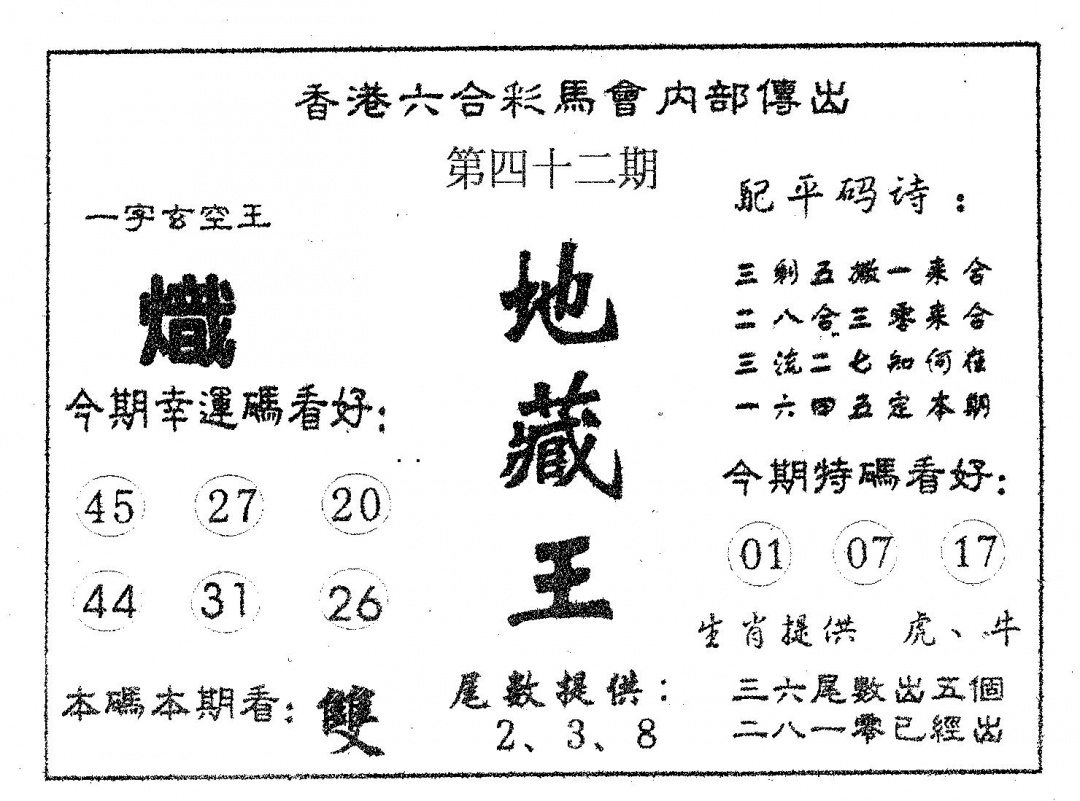 香港六合彩馬會内部傳出
第四十二期
一字玄空王
熾
今期幸運碼看好：
45 27 20
44 31 26
本碼本期看：雙
地藏王
尾數提供：
2、3、8
配平码诗：
三剩五搬一来合
二八合三零来合
三流二七知何在
一六四五定本期
今期特碼看好：
01 07 17
生肖提供 虎、牛
三六尾數出五個
二八一零已經出